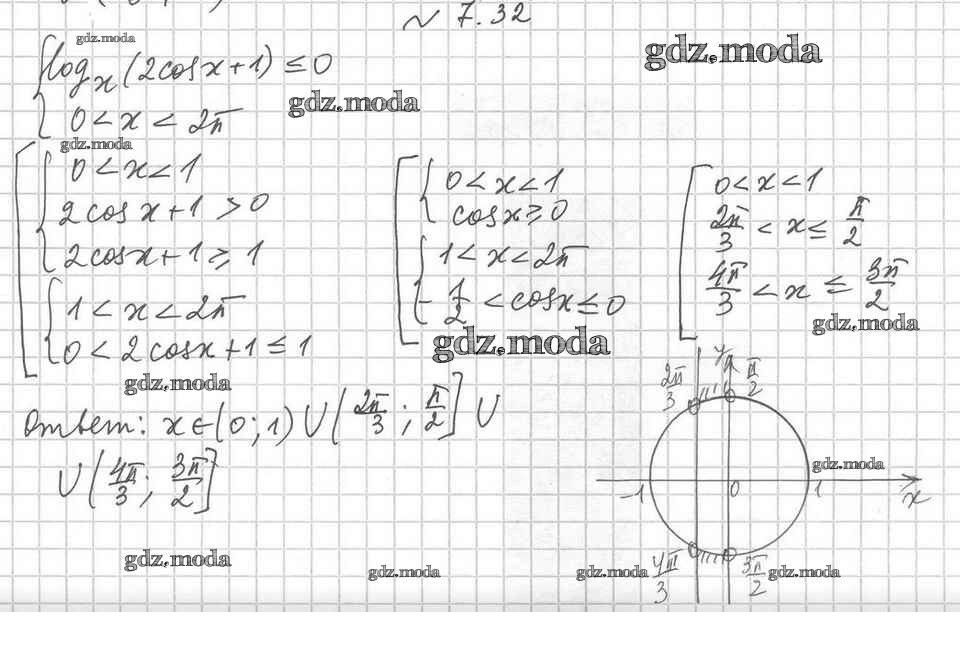 № 7.32
gdz.moda
gdz.moda
log_x (2cosx+1) ≤ 0
gdz.moda
0 < x < 2π
gdz.moda
0 < x < 1
2cosx+1 > 0
2cosx+1 ≥ 1
1 < x < 2π
0 < 2cosx+1 ≤ 1
0 < x < 1
cosx ≥ 0
1 < x < 2π
-1/2 < cosx ≤ 0
0 < x < 1
2π/3 < x ≤ π/2
4π/3 < x ≤ 3π/2
gdz.moda
gdz.moda
gdz.moda
Ответ: x ∈ (0; 1) ∪ (2π/3; π/2] ∪
∪ (4π/3; 3π/2]
2π/3
y
π/2
gdz.moda
-1
0
1
x
4π/3
3π/2
gdz.moda
gdz.moda
gdz.moda
gdz.moda